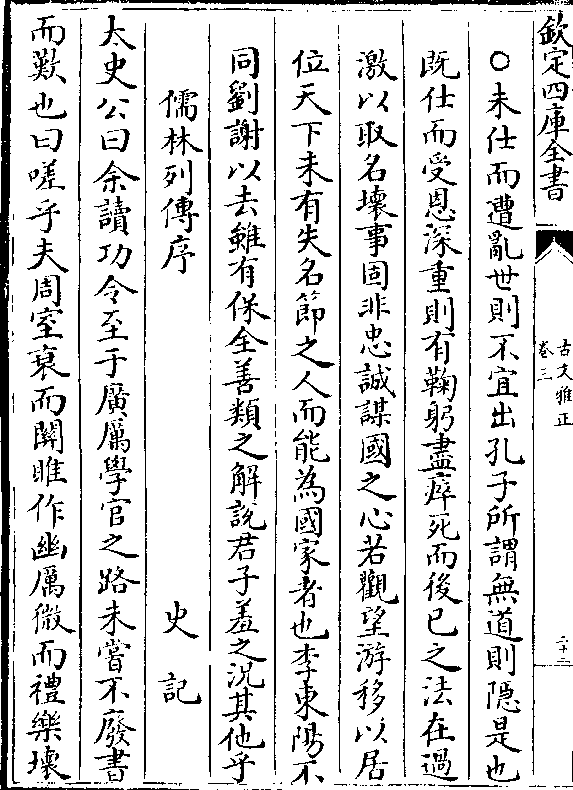 ○未仕而遭亂世則不宜出孔子所謂無道則隠是也
既仕而受恩深重則有鞠躬盡瘁死而後已之法在過
激以取名壞事固非忠誠謀國之心若觀望游移以居
位天下未有失名節之人而能為國家者也李東陽不
同劉謝以去雖有保全善類之解説君子羞之況其他乎
儒林列傳序　史記
太史公曰余讀功令至于廣厲學官之路未嘗不廢書
而歎也曰嗟乎夫周室衰而關雎作幽厲微而禮樂壞
欽定四庫全書
古文雅正
卷三
二十三